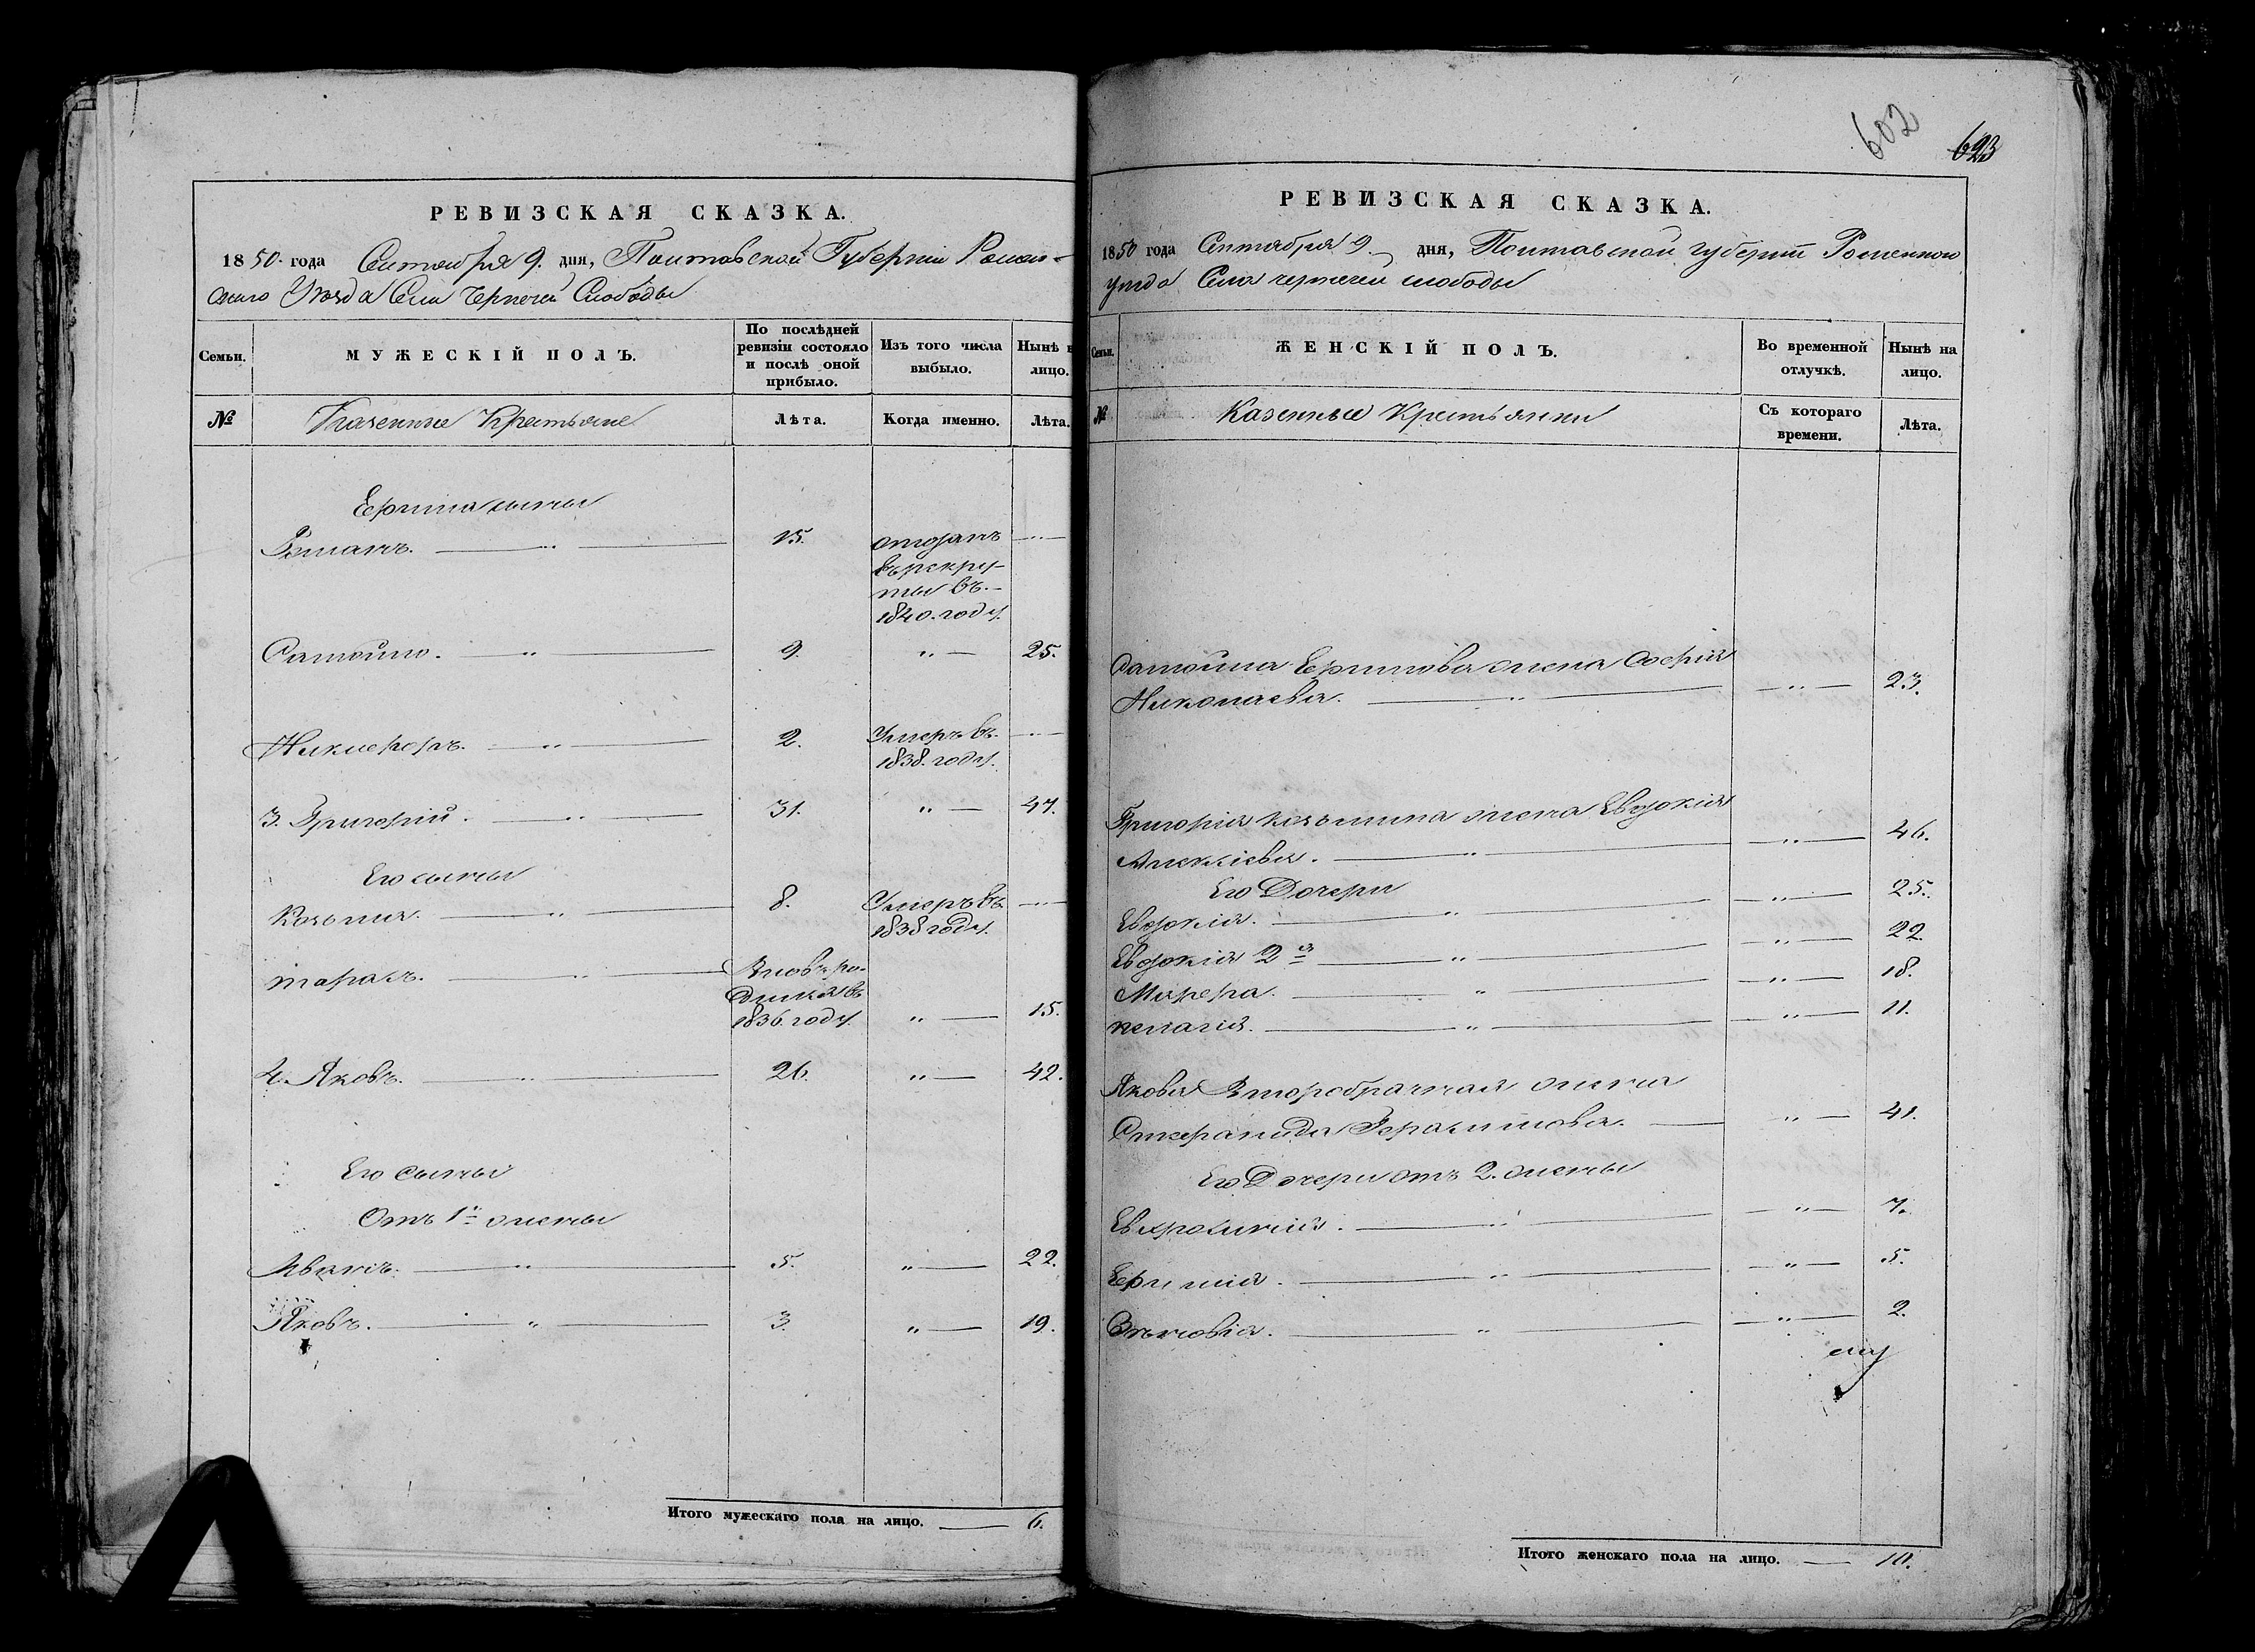 602
623
РЕВИЗСКАЯ СКАЗКА.
1850 года Сентября 9. дня, Полтавской Губерніи Ромен-
скаго Уезда Села Чернечей Слободы
Семьи. МУЖЕСКІЙ ПОЛЪ. По послѣдней ревизіи состояло и послѣ оной прибыло. Изъ того числа выбыло. Нынѣ на лицо.
№ Казенные Крестьяне Лѣта. Когда именно. Лѣта.
Ефима сыны
Романъ. 15. отданъ
въ рекру-
ты въ
1840. году.
Самойло. 9. 25.
Никифоръ. 2. Умеръ въ
1838. году.
3. Григорій. 31. 47.
Его сыны
Козьма. 8. Умеръ въ
1838 году.
Тарасъ. Вновь ро-
дился въ
1836. году. 15.
4. Яковъ. 26. 42.
Его сыны
Отъ 1й жены
Иванъ. 5. 22.
Яковъ. 3. 19.
Итого мужескаго пола на лицо. 6.
РЕВИЗСКАЯ СКАЗКА.
1850 года Сентября 9 дня, Полтавской губерніи Роменскаго
уезда Села чернечей слободы
Семьи. ЖЕНСКІЙ ПОЛЪ. Во временной отлучкѣ. Нынѣ на лицо.
№ Казенные Крестьянки Съ котораго времени. Лѣта.
Самойла Ефимова жена Софія
Николаева. 23.
Григорія Козьмина жена Евдокія
Алексіева. 46.
Его Дочери
Евдокія. 25.
Евдокія 2я 22.
Марфа. 18.
пелагія. 11.
Якова Второбрачная жена
Степанида Герасимова. 41.
Его Дочери отъ 2. жены
Евфросинія. 7.
Ефимія. 5.
Зѣновія. 2.
Итого женскаго пола на лицо. 10.